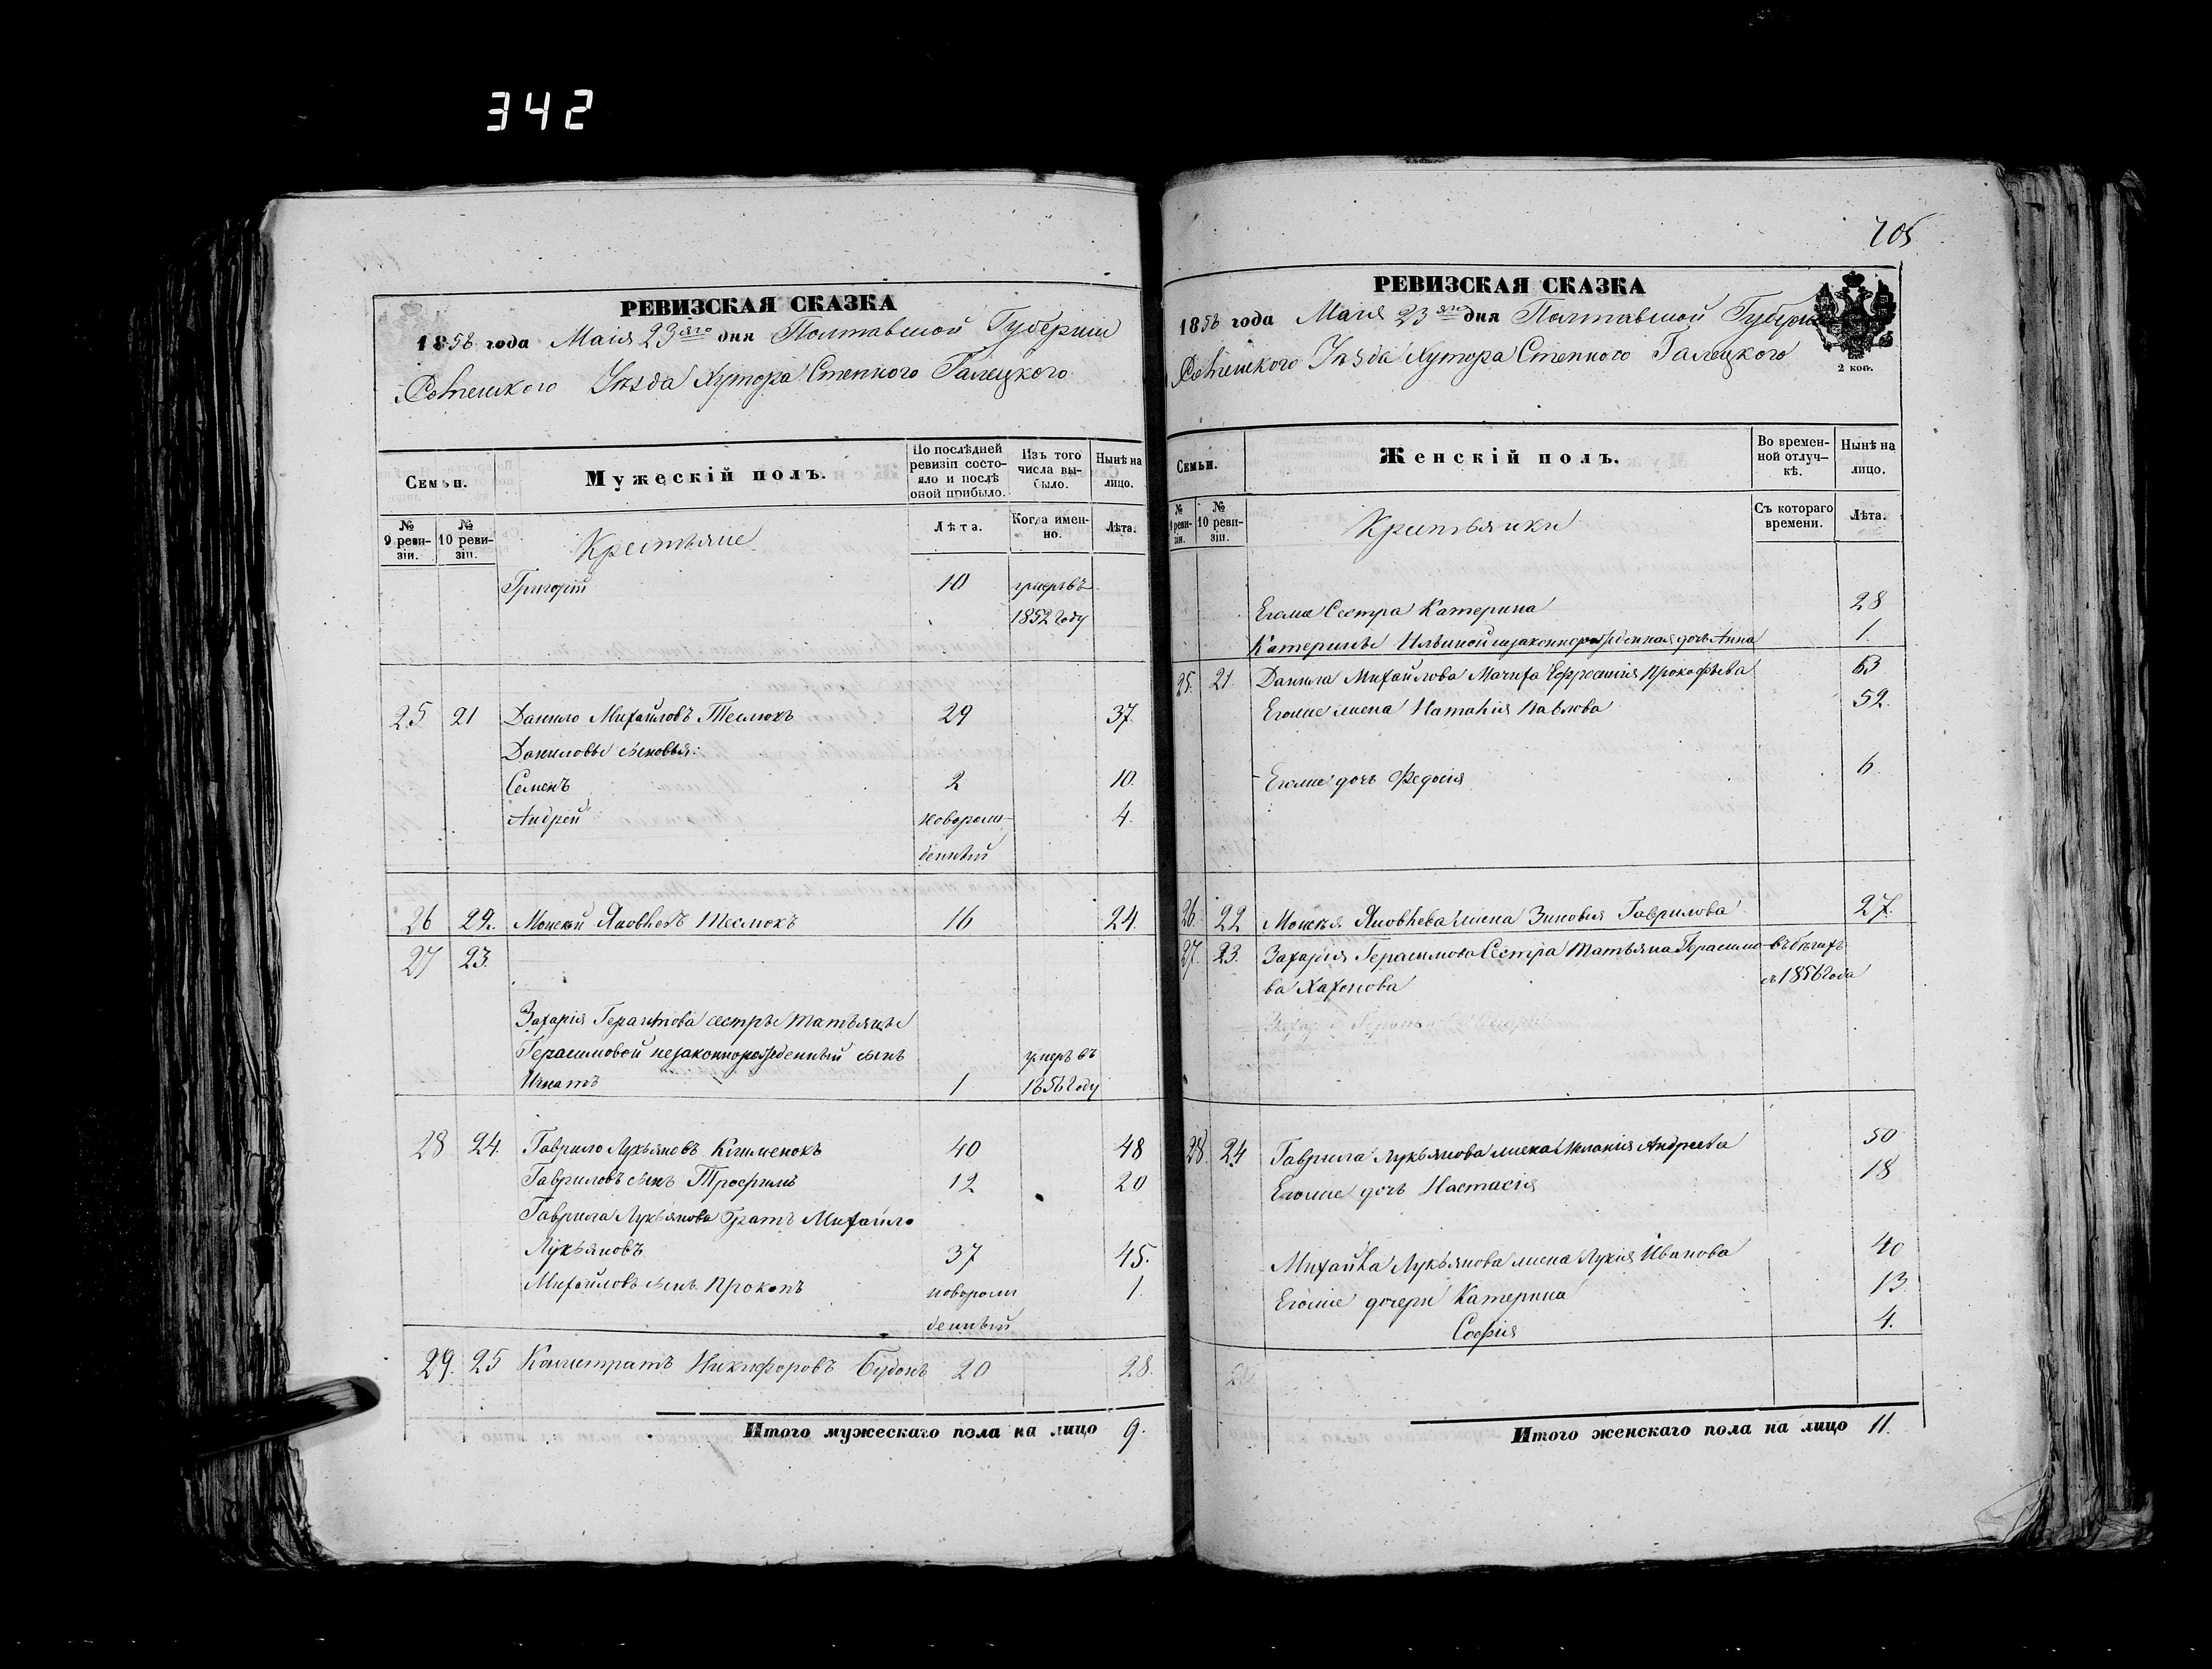 342
РЕВИЗСКАЯ СКАЗКА
1858 года Маія 23яго дня Полтавской Губерніи
Уѣзда Хутора Степного Галецкого
Семьи.
Мужескій полъ.
По послѣдней ревизіи состояло и послѣ оной прибыло.
Изъ того числа выбыло.
Нынѣ на лицо.
№ 9 ревизіи.
№ 10 ревизіи.
Крестьяне
Лѣта.
Когда именно.
Лѣта.
Григорій 10 умеръ въ
1852 году
25 21 Данило Михайловъ Теслюкъ 29 37.
Даниловы сыновья:
Семенъ 2 10.
Андрей новорож- 4.
денный
26 22. Моисей Яковлевъ Теслюкъ 16 24.
27 23.
Захарія Герасимова сестры Татьяны
Герасимовой незаконнорожденный сынъ умеръ въ
Игнатъ 1 1856 году
28 24. Гаврило Лукьяновъ 40 48
Гавриловъ сынъ Трофимъ 12 20
Гаврила Лукьянова братъ Михайло
Лукьяновъ 37 45.
Михайловъ сынъ Прокопъ новорож 1.
денный
29. 25 Калистратъ Никифоровъ 20 28.
Итого мужескаго пола на лицо 9.
705
РЕВИЗСКАЯ СКАЗКА
1858 года Маія 23яго дня Полтавской
Уѣзда Хутора Степного Галецкого
2 коп.
Семьи.
Женскій полъ.
Во временной отлучкѣ.
Нынѣ на лицо.
№ 9 ревизіи.
№ 10 ревизіи.
Крестьянки
Съ котораго времени.
Лѣта.
Его же Сестра Катерина 28
Катерины Ильиной незаконнорожденная дочь Анна 1.
25. 21 Данила Михайлова Мачиха Ефросинія Прокофьева 63
Его же жена Наталія Павлова 52.
Его же дочь Федосія 6
26. 22 Моисея Яковлева жена Зиновія Гаврилова 27.
27. 23. Захарія Герасимова Сестра Татьяна Герасимо- въ бѣгахъ
ва с 1856 года
28. 24 Гаврила Лукьянова жена Меланія Андреева 50
Его же дочь Настасія 18
Михайла Лукьянова жена Лукія Иванова 40
Его же дочери Катерина 13
Софія 4.
Итого женскаго пола на лицо 11.